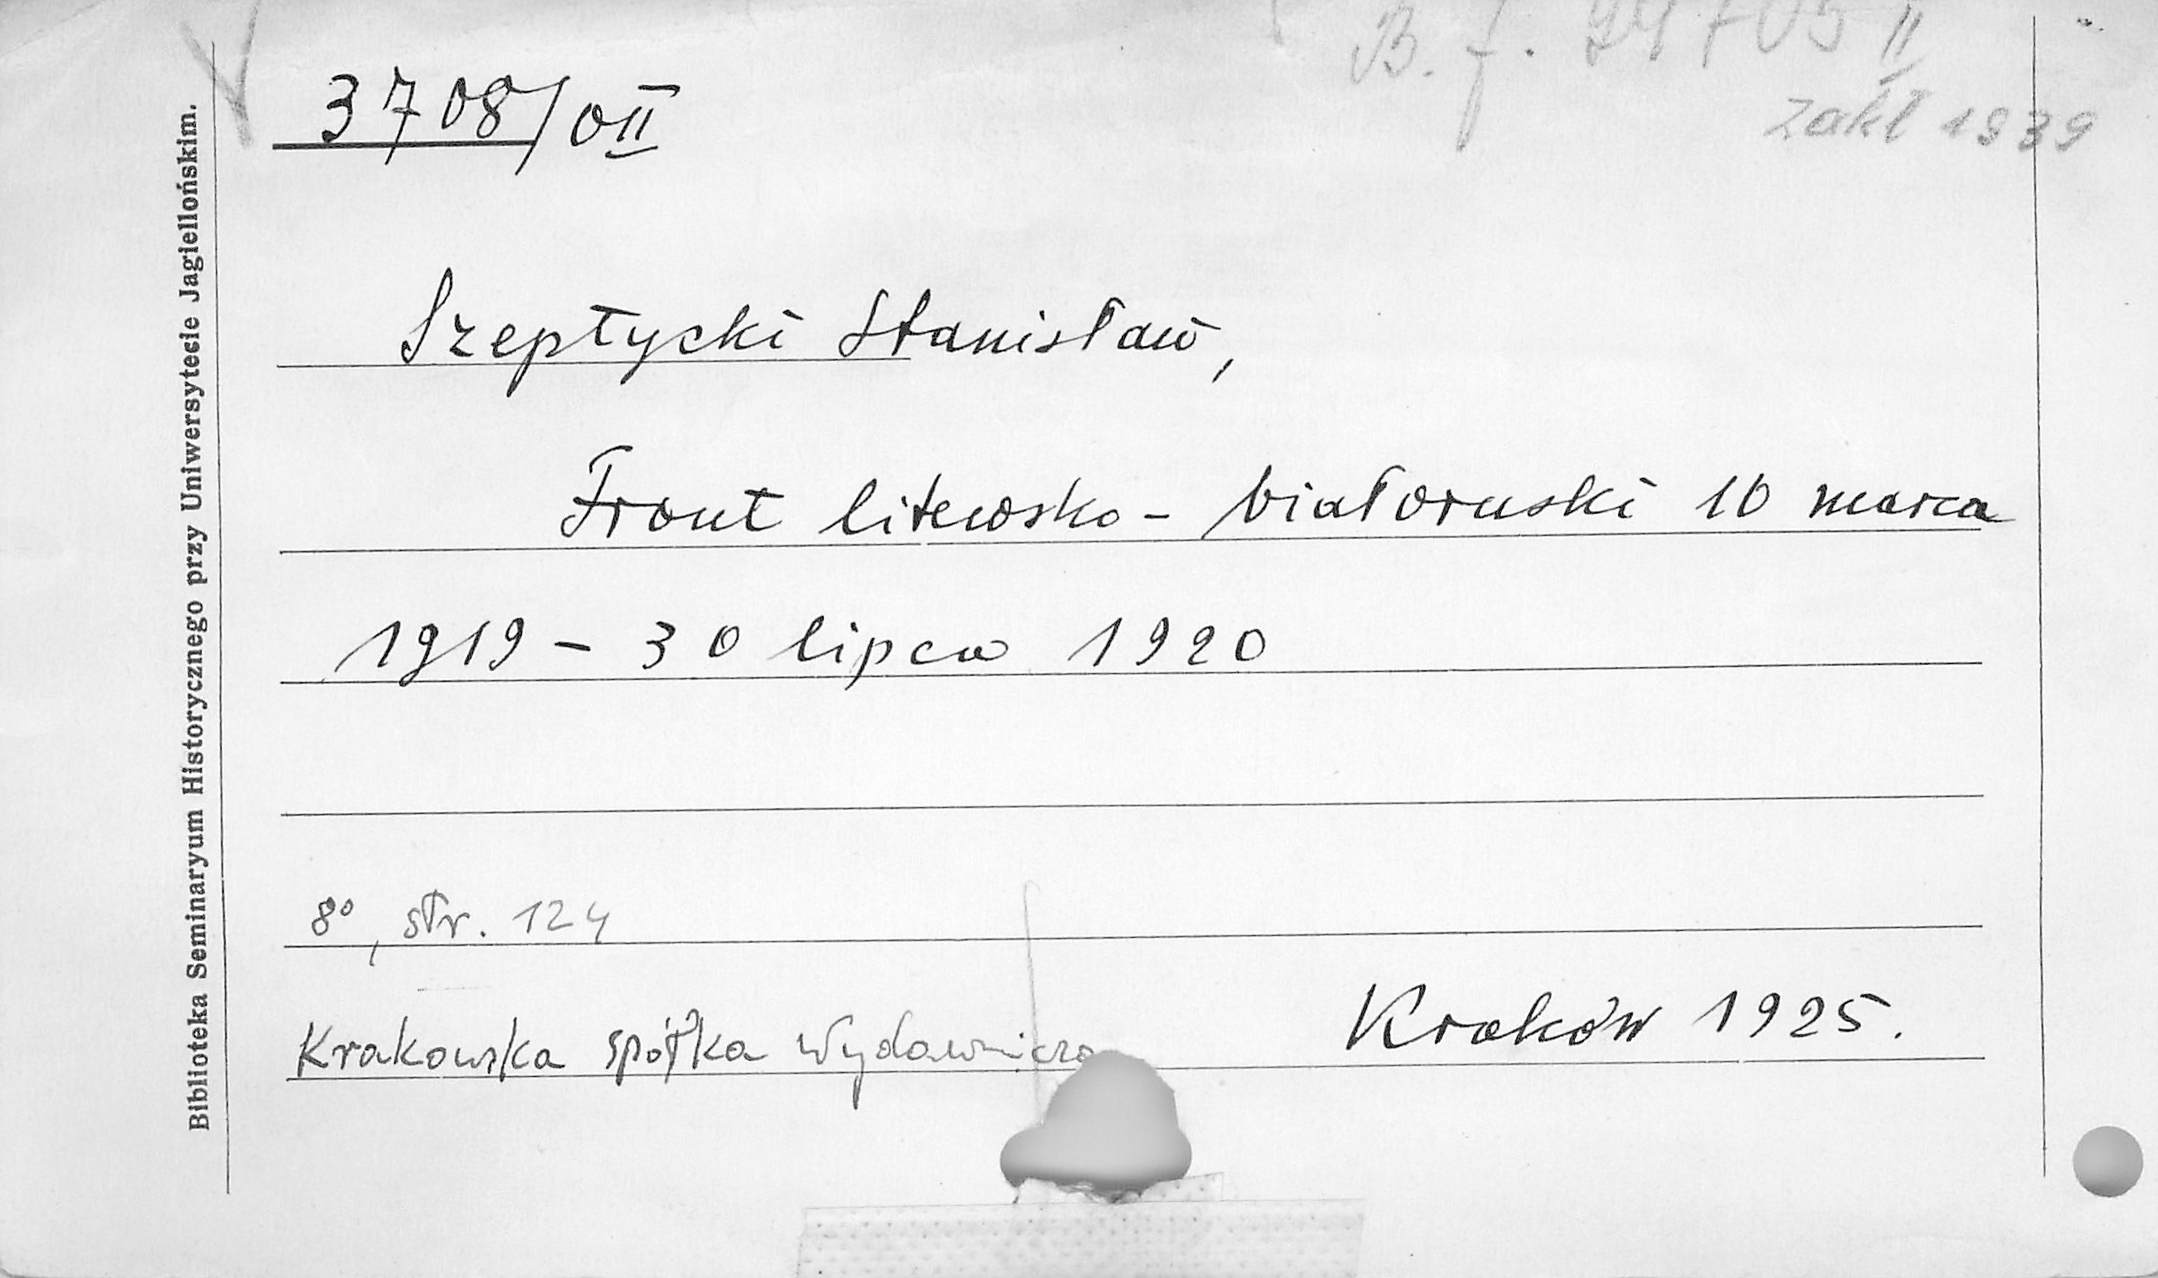 B. f. 24705 II
3708/0II
zakł 1939
Biblioteka Seminaryum Historycznego przy Uniwersytecie Jagiellońskim.
Szeptycki Stanisław,
Front litewsko - białoruski 10 marca
1919 - 30 lipca 1920
8°, str. 124
Krakowska spółka Wydawnicza Kraków 1925.